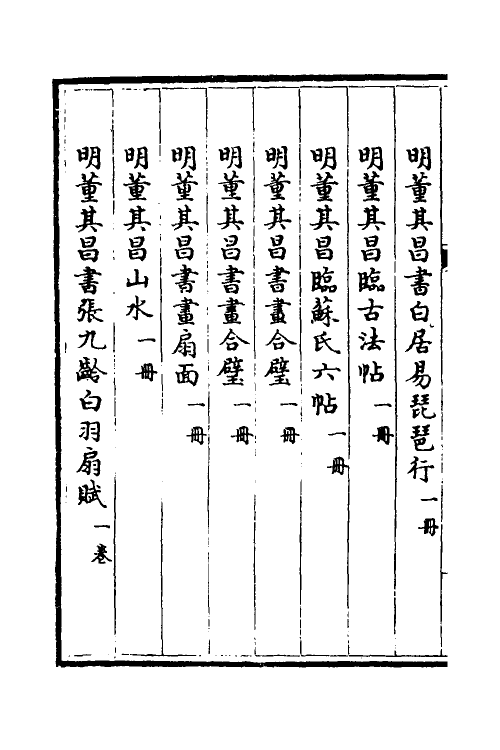 明董其昌書白居易琵琶行一冊
明董其昌臨古法帖一冊
明董其昌臨蘇氏六帖一冊
明董其昌書畫合璧一冊
明董其昌書畫合璧一冊
明董其昌書畫扇面一冊
明董其昌山水一冊
明董其昌書張九齡白羽扇賦一卷